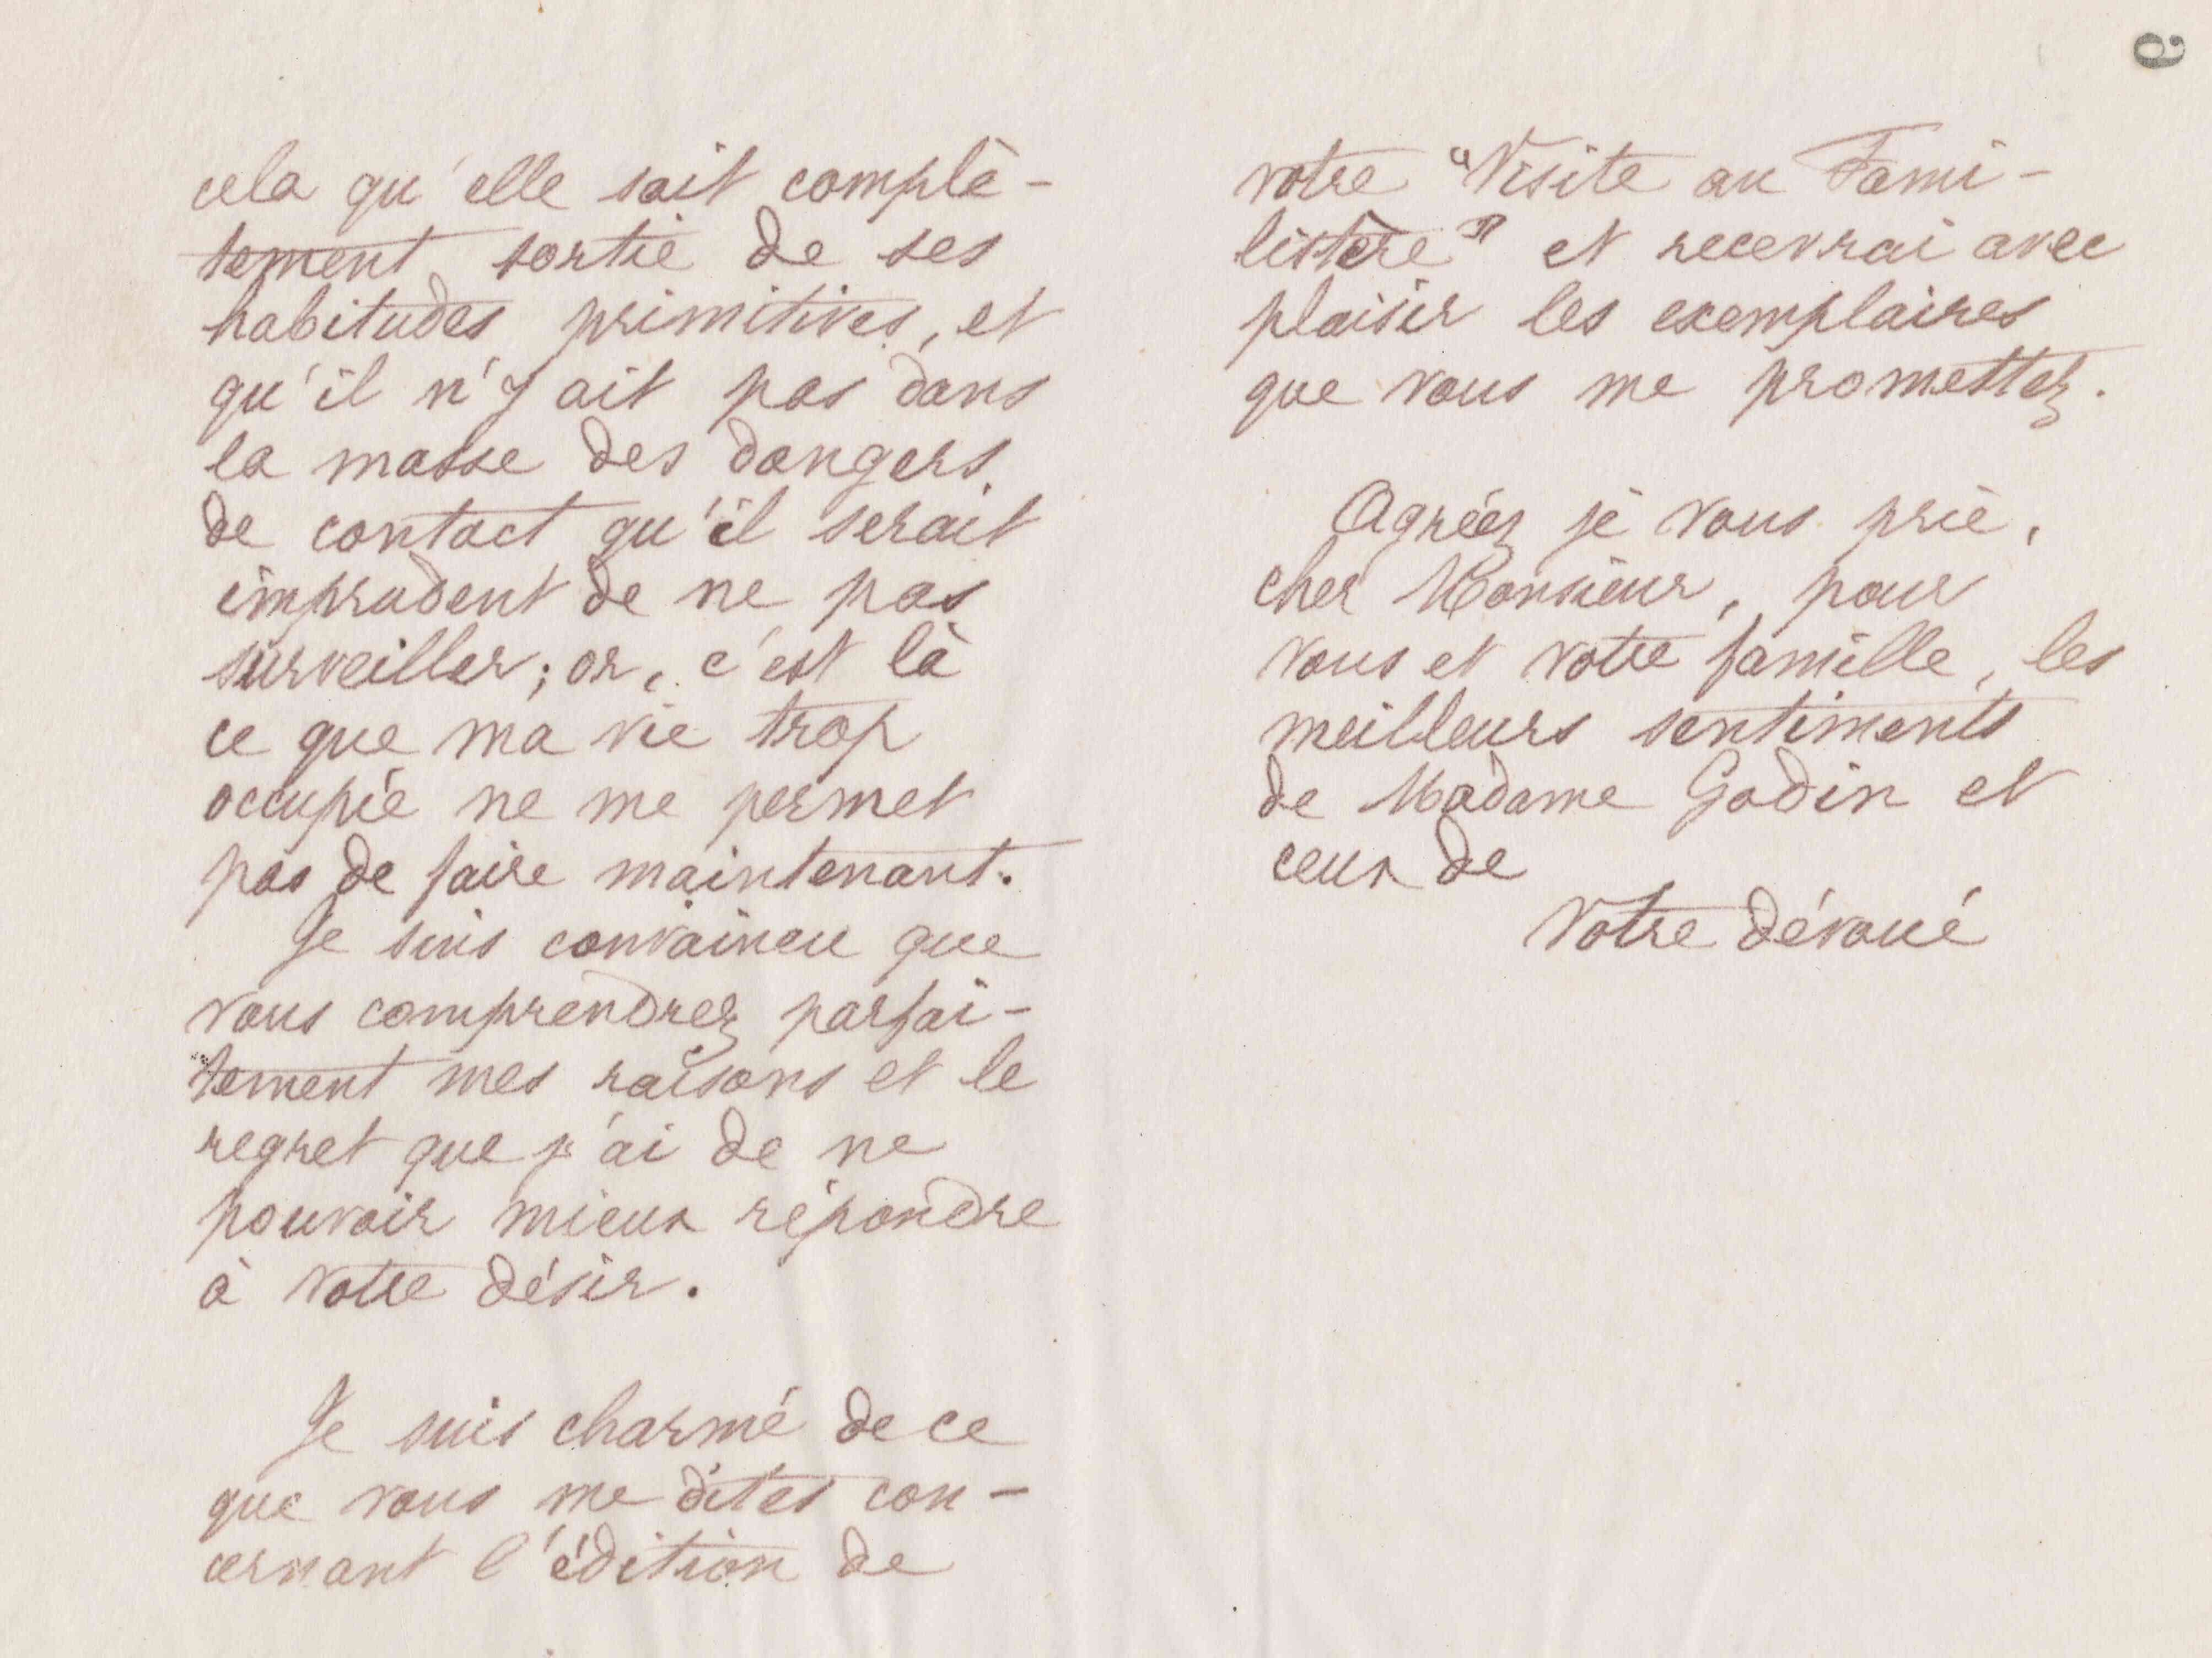 cela qu'elle soit complè-
tement sortie de ses
habitudes primitives, et
qu'il n'y ait pas dans
la masse des dangers
de contact qu'il serait
imprudent de ne pas
surveiller; or, c'est là
ce que ma vie trop
occupée ne me permet
pas de faire maintenant.
Je suis convaincu que
vous comprendrez parfai-
tement mes raisons et le
regret que j'ai de ne
pouvoir mieux répondre
à votre désir.
Je suis charmé de ce
que vous me dites con-
cernant l'édition de
votre "Visite au Fami-
listère" et recevrai avec
plaisir les exemplaires
que vous me promettez.
Agréez je vous prie,
cher Monsieur, pour
vous et votre famille, les
meilleurs sentiments
de Madame Godin et
ceux de
Votre dévoué
9